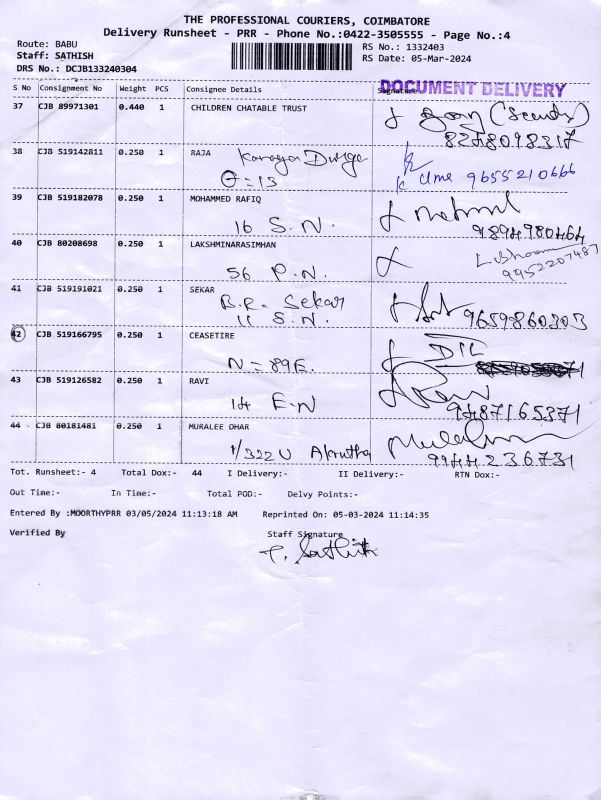 THE PROFESSIONAL COURIERS, COIMBATORE
Delivery Runsheet - PRR - Phone No.:0422-3505555 - Page No.:4
Route: BABU
Staff: SATHISH
DRS No.: DCJB133240304
RS No.: 1332403
RS Date: 05-Mar-2024
S No Consignment No Weight PCS Consignee Details Signature
DOCUMENT DELIVERY
37 CJB 89971301 0.440 1 CHILDREN CHATABLE TRUST
8248098317
38 CJB 519142811 0.250 1 RAJA
9655210666
39 CJB 519182078 0.250 1 MOHAMMED RAFIQ
16 S.N.
9894980464
40 CJB 80208698 0.250 1 LAKSHMINARASIMHAN
56 P.N.
9952207487
41 CJB 519191021 0.250 1 SEKAR
B.R. Sekar
11 S.N.
9659860303
42 CJB 519166795 0.250 1 CEASETIRE
N = 89E.
43 CJB 519126582 0.250 1 RAVI
14 E.N
Ravi
9487165371
44 CJB 80181481 0.250 1 MURALEE DHAR
1/322U
9944236731
Tot. Runsheet:- 4 Total Dox:- 44 I Delivery:- II Delivery:- RTN Dox:-
Out Time:- In Time:- Total POD:- Delvy Points:-
Entered By :MOORTHYPRR 03/05/2024 11:13:18 AM Reprinted On: 05-03-2024 11:14:35
Verified By Staff Signature
T. Sathish